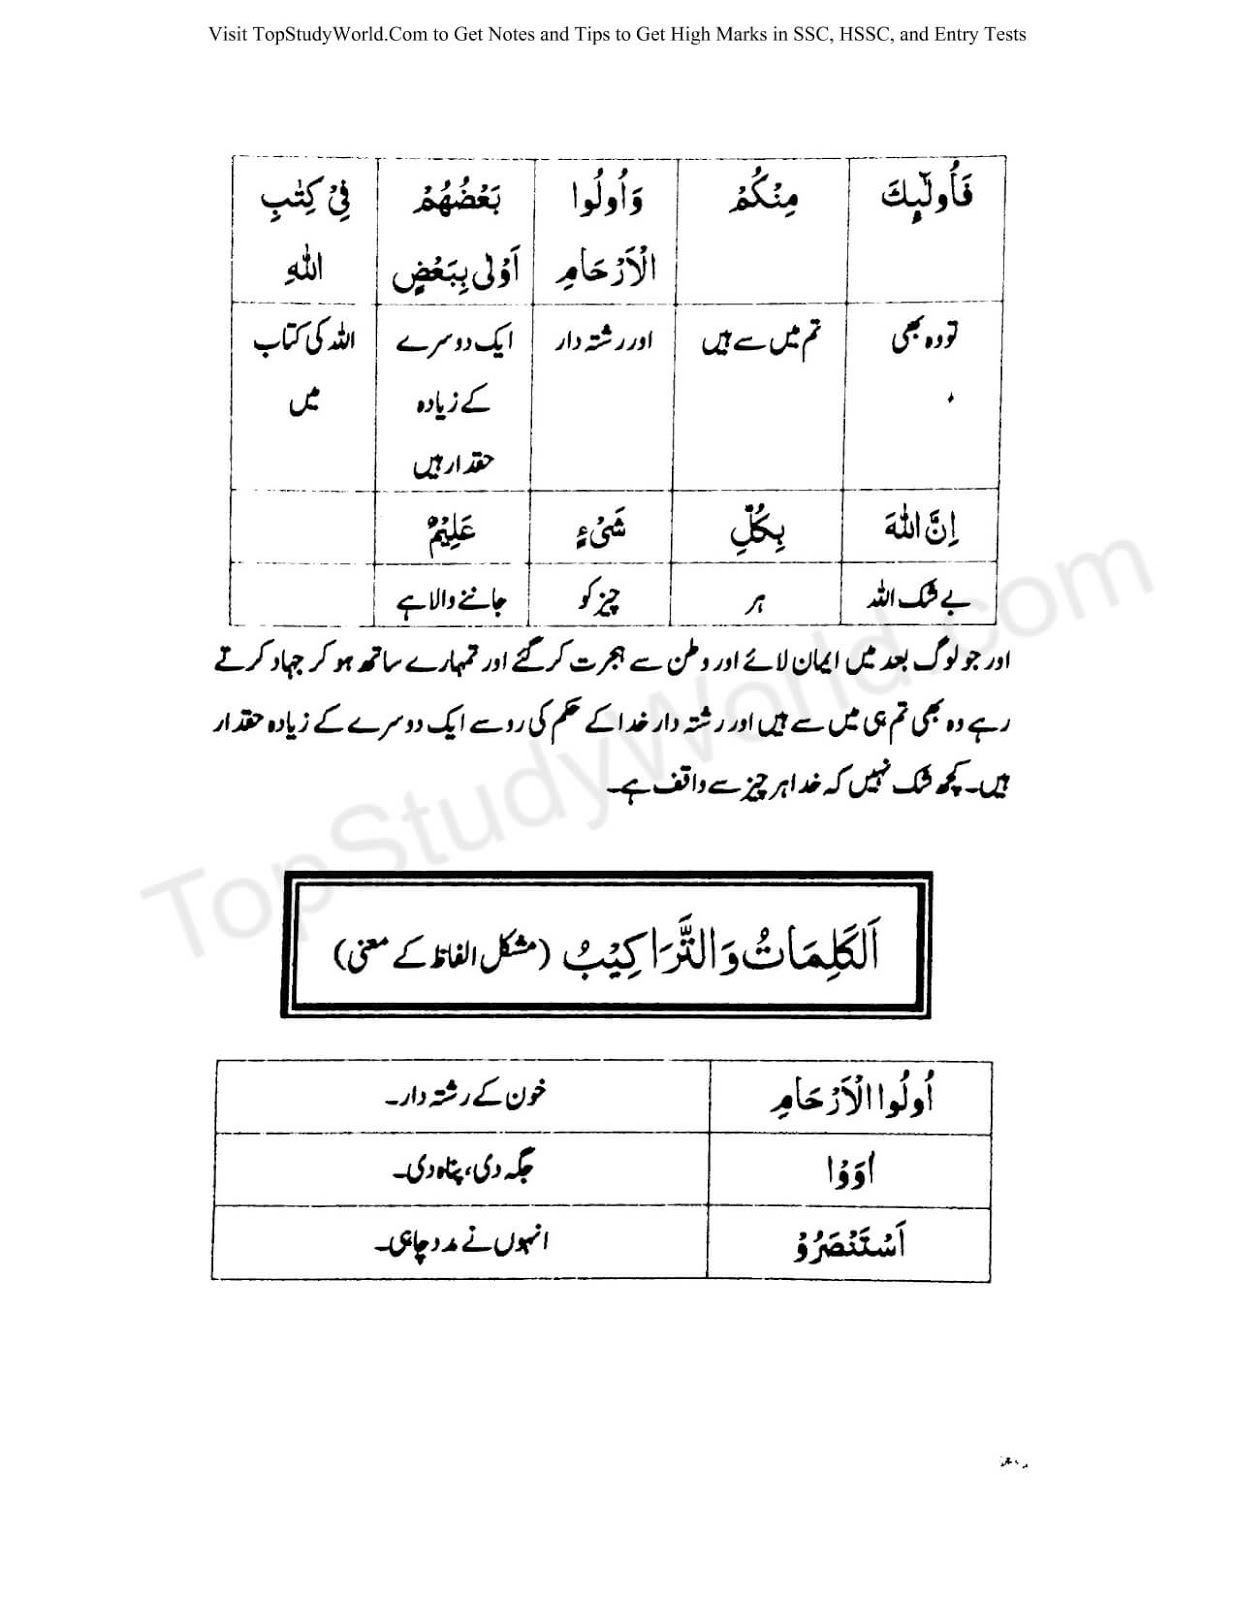 Visit TopStudyWorld.Com to Get Notes and Tips to Get High Marks in SSC, HSSC, and Entry Tests
فَأُولٰٓئِكَ مِنْكُمْ وَأُولُوا بَعْضُهُمْ فِیْ كِتٰبِ
الْاَرْحَامِ اَوْلٰی بِبَعْضٍ اللّٰهِ
تو وہ بھی تم میں سے ہیں اور رشتہ دار ایک دوسرے اللہ کی کتاب
کے زیادہ میں
حقدار ہیں
اِنَّ اللّٰهَ بِكُلِّ شَیْءٍ عَلِیْمٌ
بے شک اللہ ہر چیز کو جاننے والا ہے
اور جو لوگ بعد میں ایمان لائے اور وطن سے ہجرت کر گئے اور تمہارے ساتھ ہو کر جہاد کرتے
رہے وہ بھی تم ہی میں سے ہیں اور رشتہ دار خدا کے حکم کی رو سے ایک دوسرے کے زیادہ حقدار
ہیں۔ کچھ شک نہیں کہ خدا ہر چیز سے واقف ہے۔
اَلْكَلِمَاتُ وَالتَّرَاكِیْبُ (مشکل الفاظ کے معنی)
اُولُوا الْاَرْحَامِ خون کے رشتہ دار۔
اٰوَوْا جگہ دی، پناہ دی۔
اَسْتَنْصَرُوْ انہوں نے مدد چاہی۔
TopStudyWorld.com